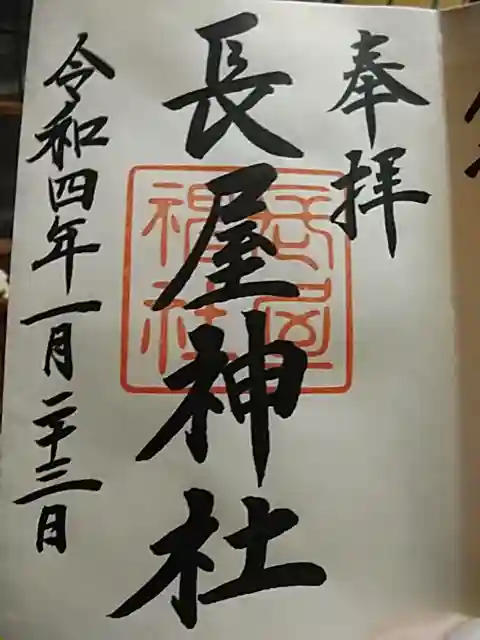 奉拝
長屋神社
長屋神社
令和四年一月二十三日